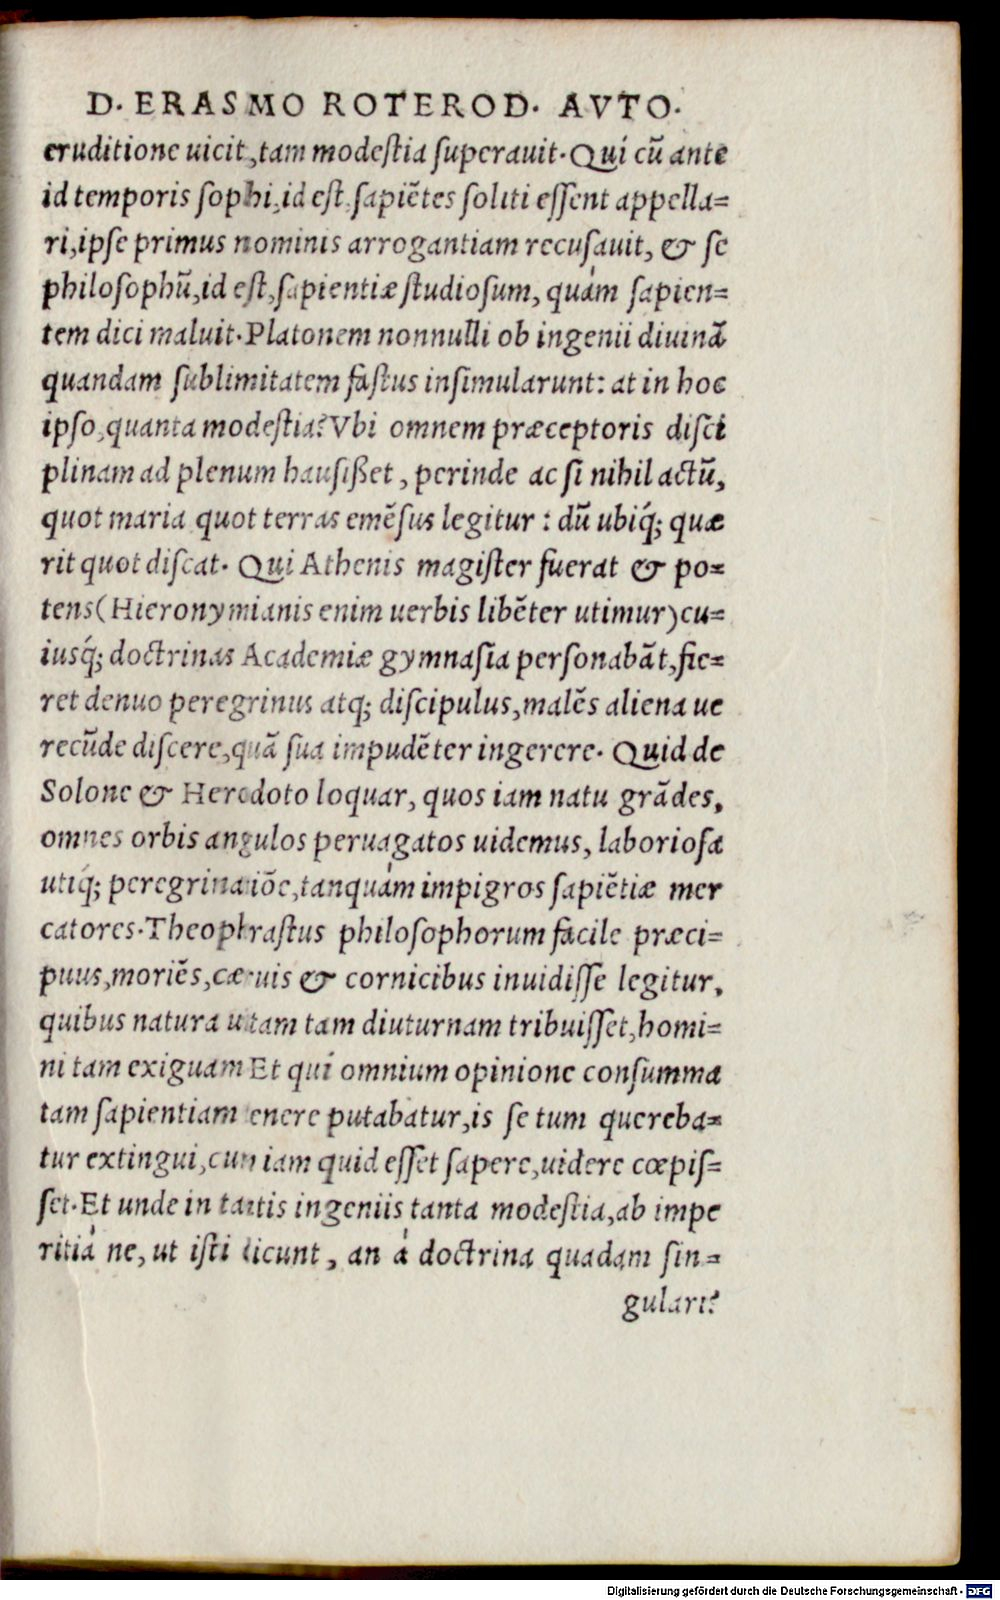 D. ERASMO ROTEROD. AVTO.
eruditione uicit, tam modestia superauit. Qui cū ante
id temporis sophi, id est, sapiētes soliti essent appella=
ri, ipse primus nominis arrogantiam recusauit, & se
philosophū, id est, sapientiæ studiosum, quàm sapien=
tem dici maluit. Platonem nonnulli ob ingenii diuinā
quandam sublimitatem fastus insimularunt: at in hoc
ipso, quanta modestia? Vbi omnem præceptoris disci
plinam ad plenum hausißet, perinde ac si nihil actū,
quot maria quot terras emēsus legitur: dū ubiq́; quæ
rit quot discat. Qui Athenis magister fuerat & po=
tens (Hieronymianis enim uerbis libēter utimur) cu=
iusq́; doctrinas Academiæ gymnasia personabāt, fie=
ret denuo peregrinus atq; discipulus, malēs aliena ue
recūde discere, quā sua impudēter ingerere. Quid de
Solone & Herodoto loquar, quos iam natu grādes,
omnes orbis angulos peruagatos uidemus, laboriosa
utiq́; peregrinatiōe, tanquàm impigros sapiētiæ mer
catores. Theophrastus philosophorum facile præci=
puus, moriēs, cæruis & cornicibus inuidisse legitur,
quibus natura uitam tam diuturnam tribuisset, homi=
ni tam exiguam Et qui omnium opinione consumma
tam sapientiam tenere putabatur, is se tum quereba=
tur extingui, cum iam quid esset sapere, uidere cœpis=
set. Et unde in tantis ingeniis tanta modestia, ab impe
ritià ne, ut isti dicunt, an à doctrina quadam sin=
gulari?
Digitalisierung gefördert durch die Deutsche Forschungsgemeinschaft - DFG